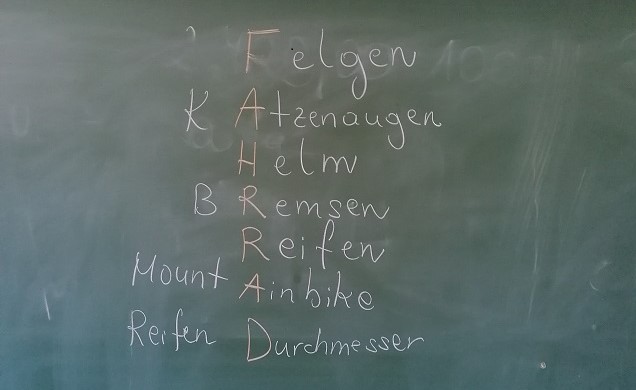 Felgen
KAtzenaugen
Helm
BRemsen
Reifen
MountAinbike
Reifen Durchmesser